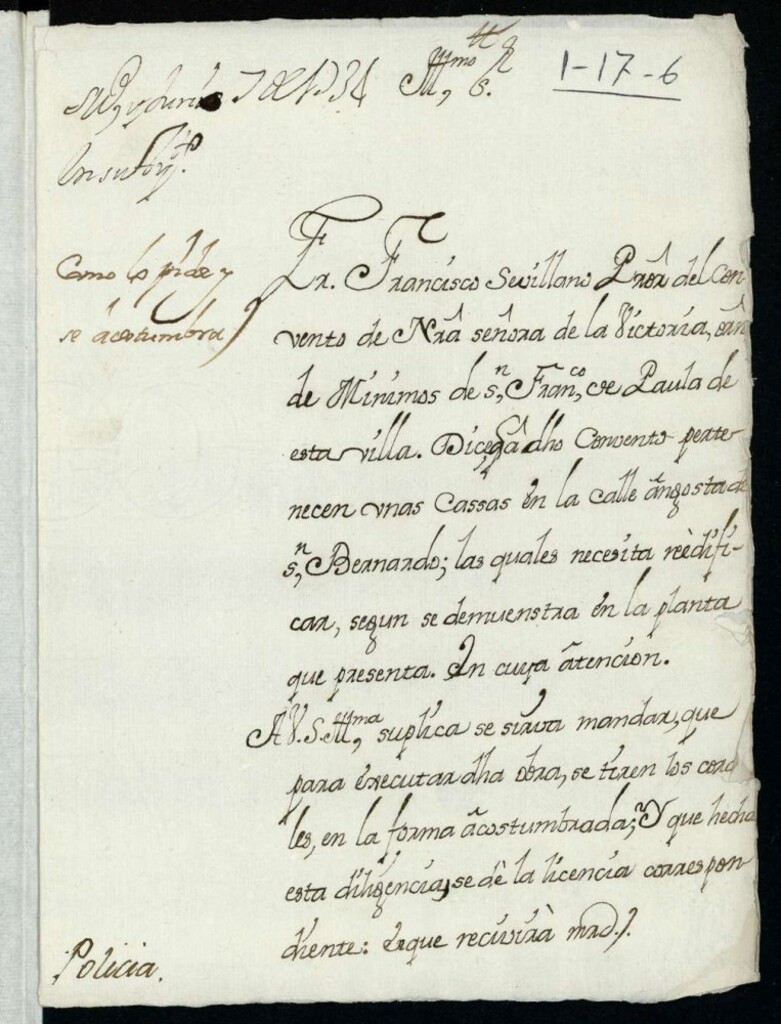 Md, y Junio 7 de 1734
Yll,mo S.r
1-17-6
En su Ay.to
Como lo pide y
se acostumbra
Fr. Francisco Sevillano Pror del Con-
vento de Nra señora de la Victoria, orn
de Minimos de s,n Fran,co de Paula de
esta villa. Dice, q̃ â dho Convento perte-
necen vnas Cassas ên la calle ângosta de
s,n Bernardo; las quales necesita reèdifi-
car, segun se demuenstra ên la planta
que presenta. En cuya âtencion.
A V.S.Yll,ma suplica se sirva mandar, que
para êxecutar dha obra, se tiren los corde
les, en la forma âcostumbrada; Y que hecha
esta diligencia, se dè la licencia correspon-
diente: ên que recivirà mrd.
Policia.